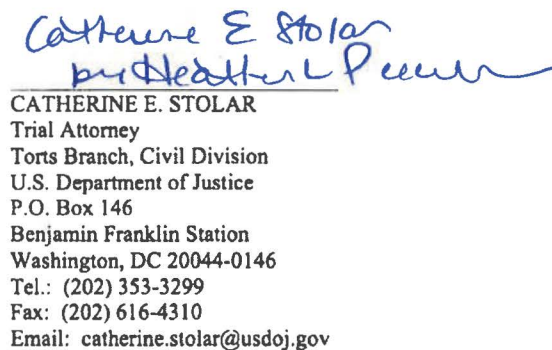 Catherine E Stolar
by Heather L
CATHERINE E. STOLAR
Trial Attorney
Torts Branch, Civil Division
U.S. Department of Justice
P.O. Box 146
Benjamin Franklin Station
Washington, DC 20044-0146
Tel.: (202) 353-3299
Fax: (202) 616-4310
Email: catherine.stolar@usdoj.gov